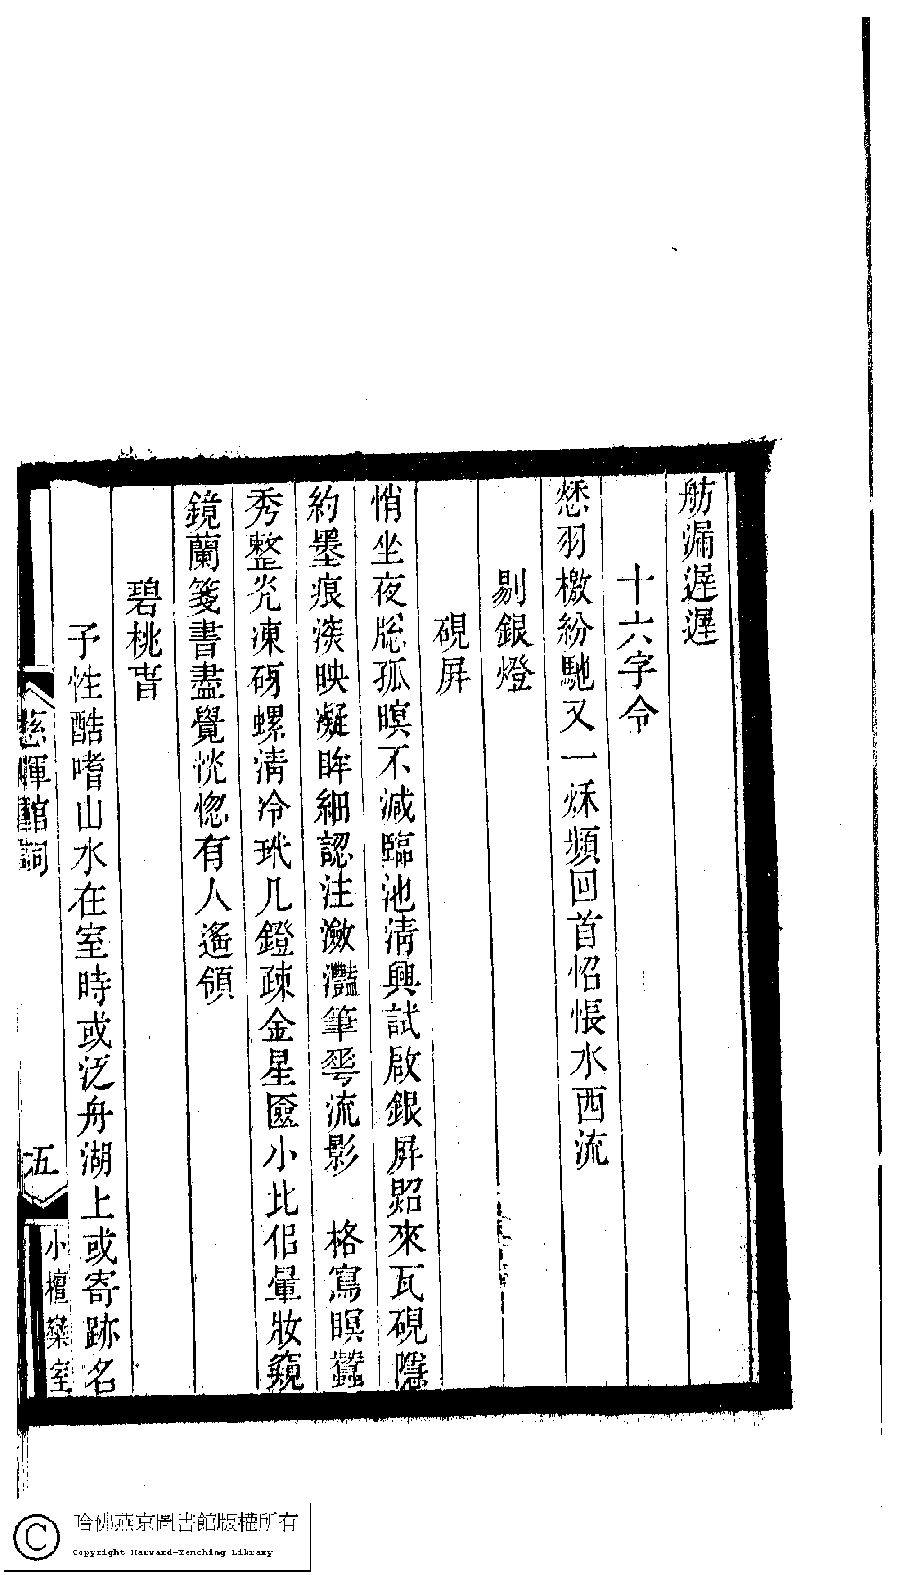 舫漏遲遲
十六字令
愁羽檄紛馳又一秌頻回首怊悵水西流
剔銀燈
硯屏
悄坐夜牕孤暝不減臨池清興試啟銀屏照來瓦硯隱
約墨痕淡映凝眸細認注瀲灩筆蕚流影　格寫暝蠶
秀整光凍硏螺淸冷玳几鐙疎金星匳小比佀暈妝窺
鏡蘭箋書盡覺恍惚有人遙領
碧桃旾
予性酷嗜山水在室時或泛舟湖上或寄跡名
慈暉館詞
五
小檀欒室
哈佛燕京圖書館版權所有
Copyright Harvard-Yenching Library